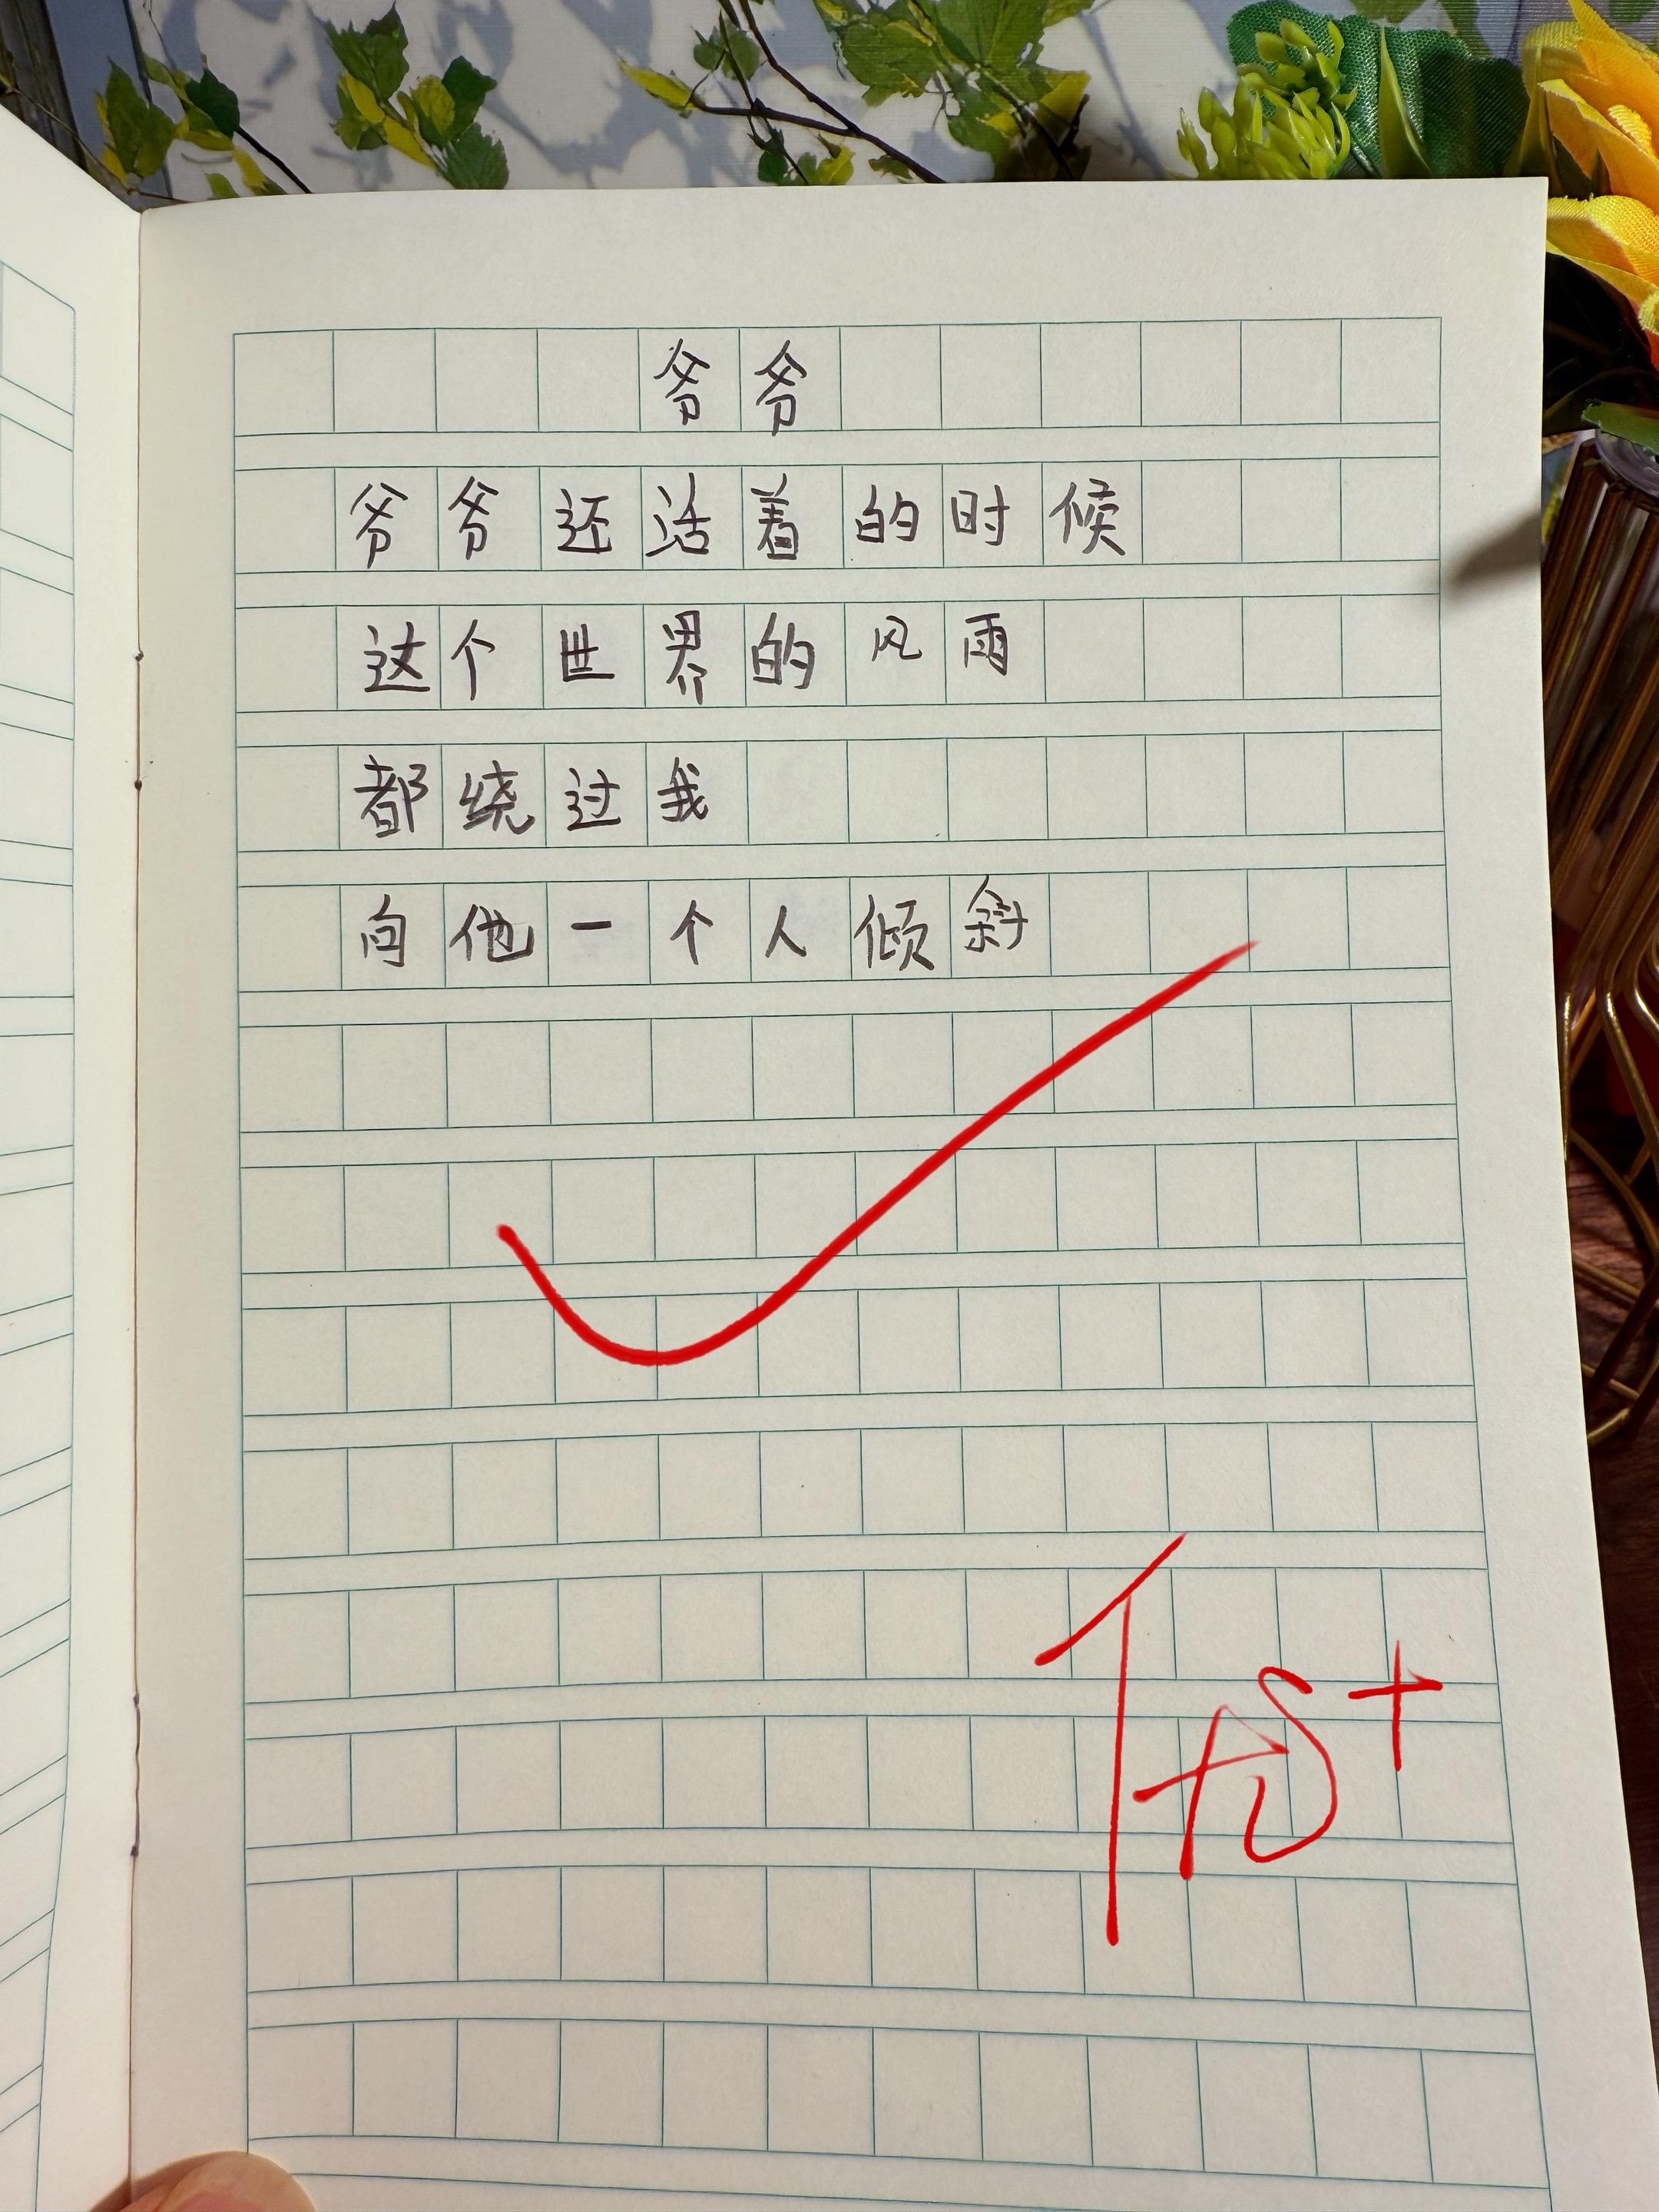 爷爷
爷爷还活着的时候
这个世界的风雨
都绕过我
向他一个人倾斜
优+